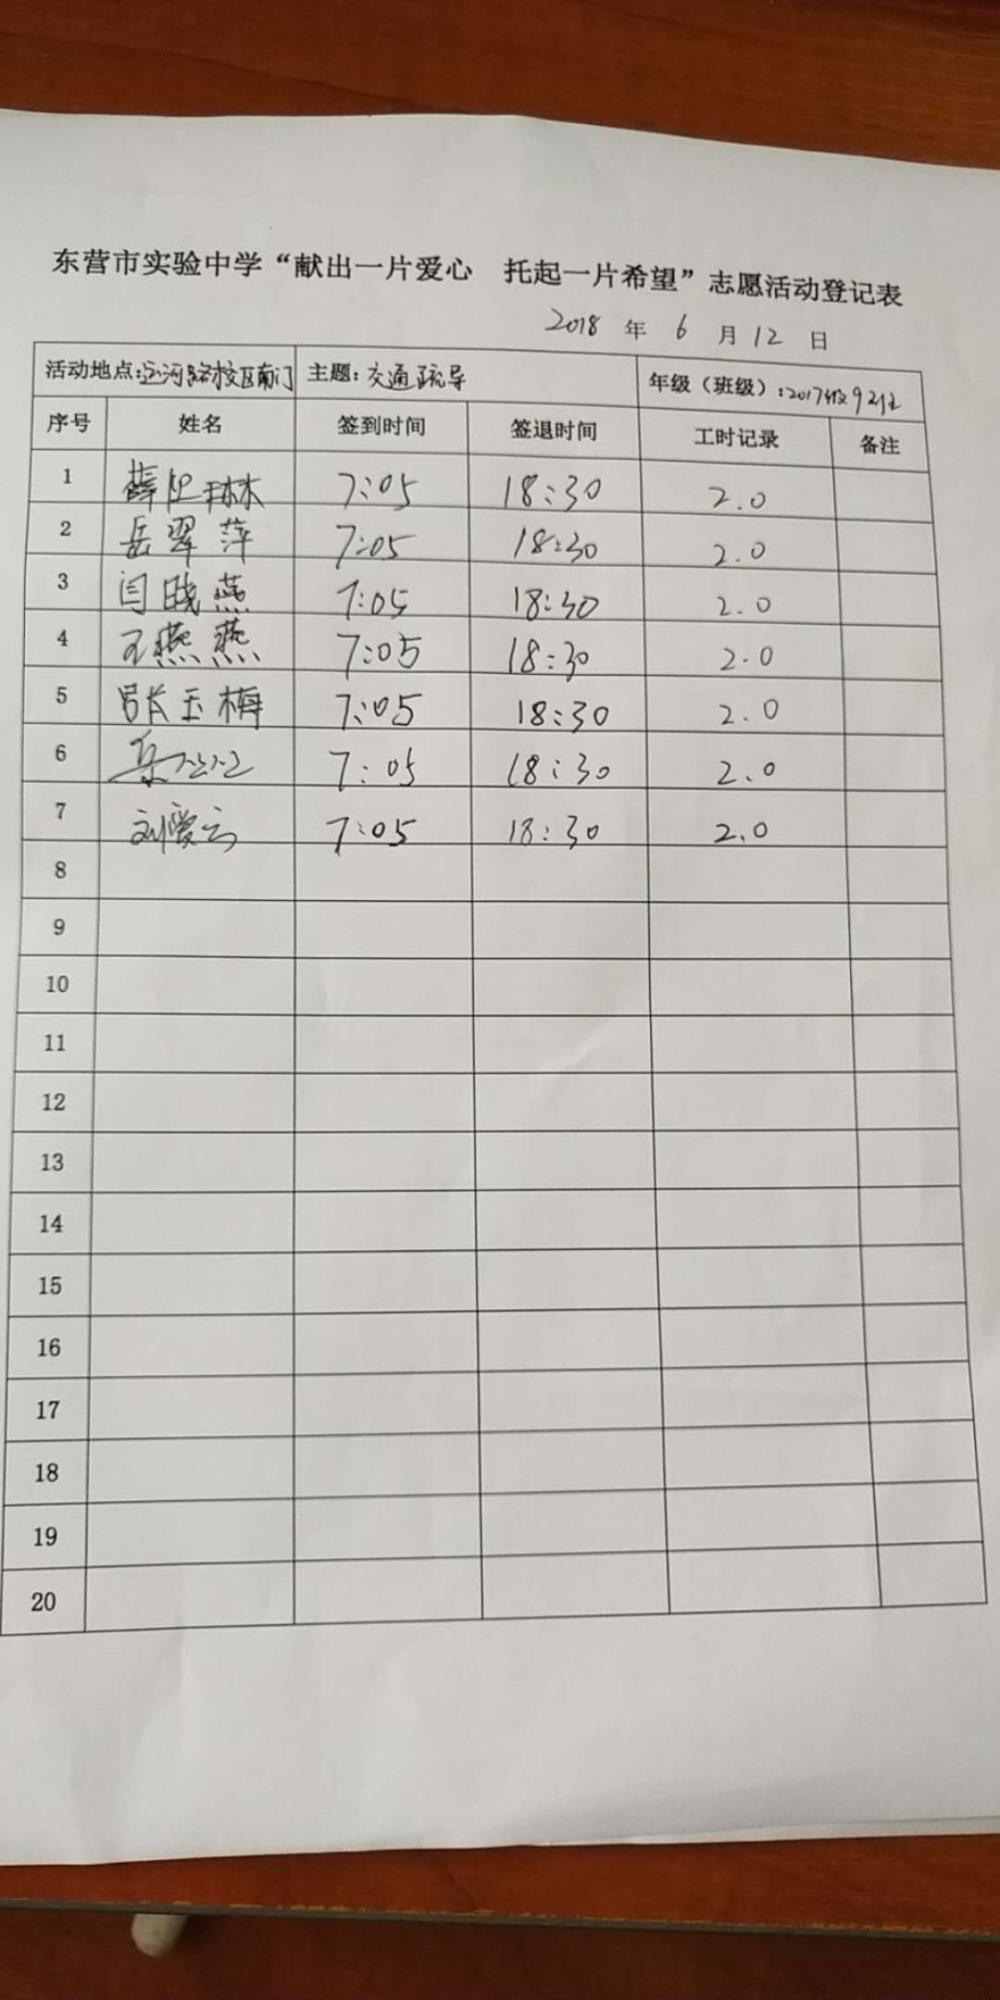 东营市实验中学“献出一片爱心 托起一片希望”志愿活动登记表
2018 年 6 月 12 日
活动地点:运河路校区南门 主题:交通疏导 年级(班级):2017级9班
序号 姓名 签到时间 签退时间 工时记录 备注
1 薛 7:05 18:30 2.0
2 岳翠萍 7:05 18:30 2.0
3 闫晓燕 7:05 18:30 2.0
4 王燕燕 7:05 18:30 2.0
5 张玉梅 7:05 18:30 2.0
6 7:05 18:30 2.0
7 刘爱云 7:05 18:30 2.0
8
9
10
11
12
13
14
15
16
17
18
19
20